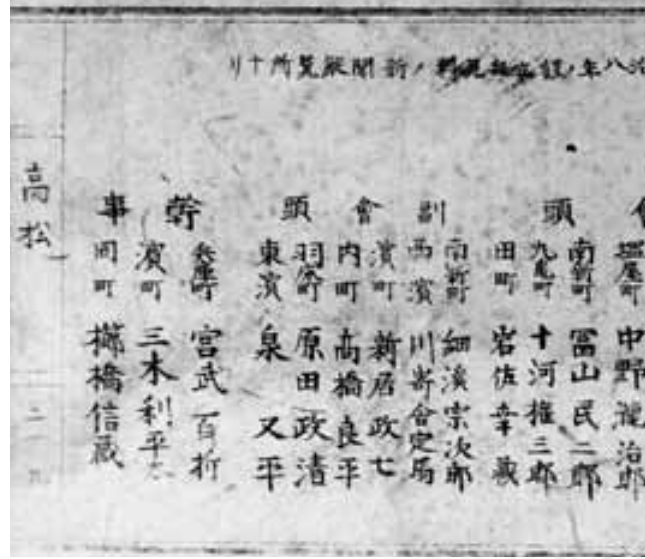 新聞縦覧所ナリ
會頭
塩屋町 中野瀧治郎
南新町 冨山民二郎
丸亀町 十河権三郎
田町 岩佐幸蔵
副會頭
南新町 細溪宗次郎
西濱
濱町 新居政七
内町 高橋良平
原田政清
東濱 泉又平
幹事
兵庫町 宮武百折
濱町 三木利平太
間町 櫛橋信蔵
高松